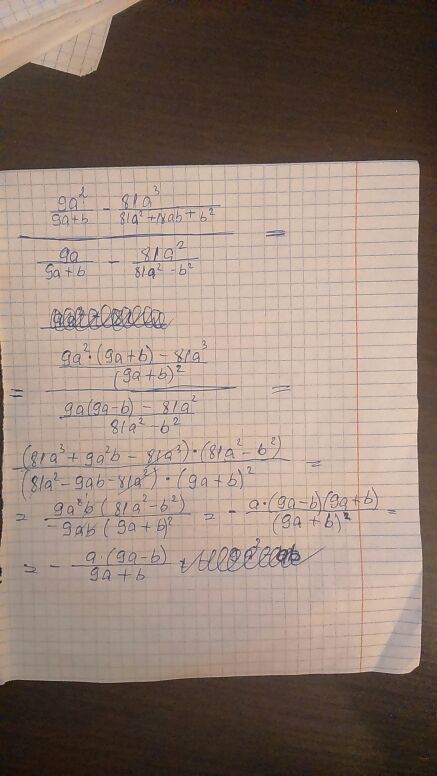 9a² / (9a+b) - 81a³ / (81a²+18ab+b²)
=
9a / (9a+b) - 81a² / (81a²-b²)
= (9a²·(9a+b)-81a³) / (9a+b)²
=
(9a(9a-b)-81a²) / (81a²-b²)
(81a³+9a²b-81a³)·(81a²-b²) / (81a²-9ab-81a²)·(9a+b)² =
= 9a²b(81a²-b²) / -9ab(9a+b)² = - a·(9a-b)(9a+b) / (9a+b)² =
= - a·(9a-b) / 9a+b